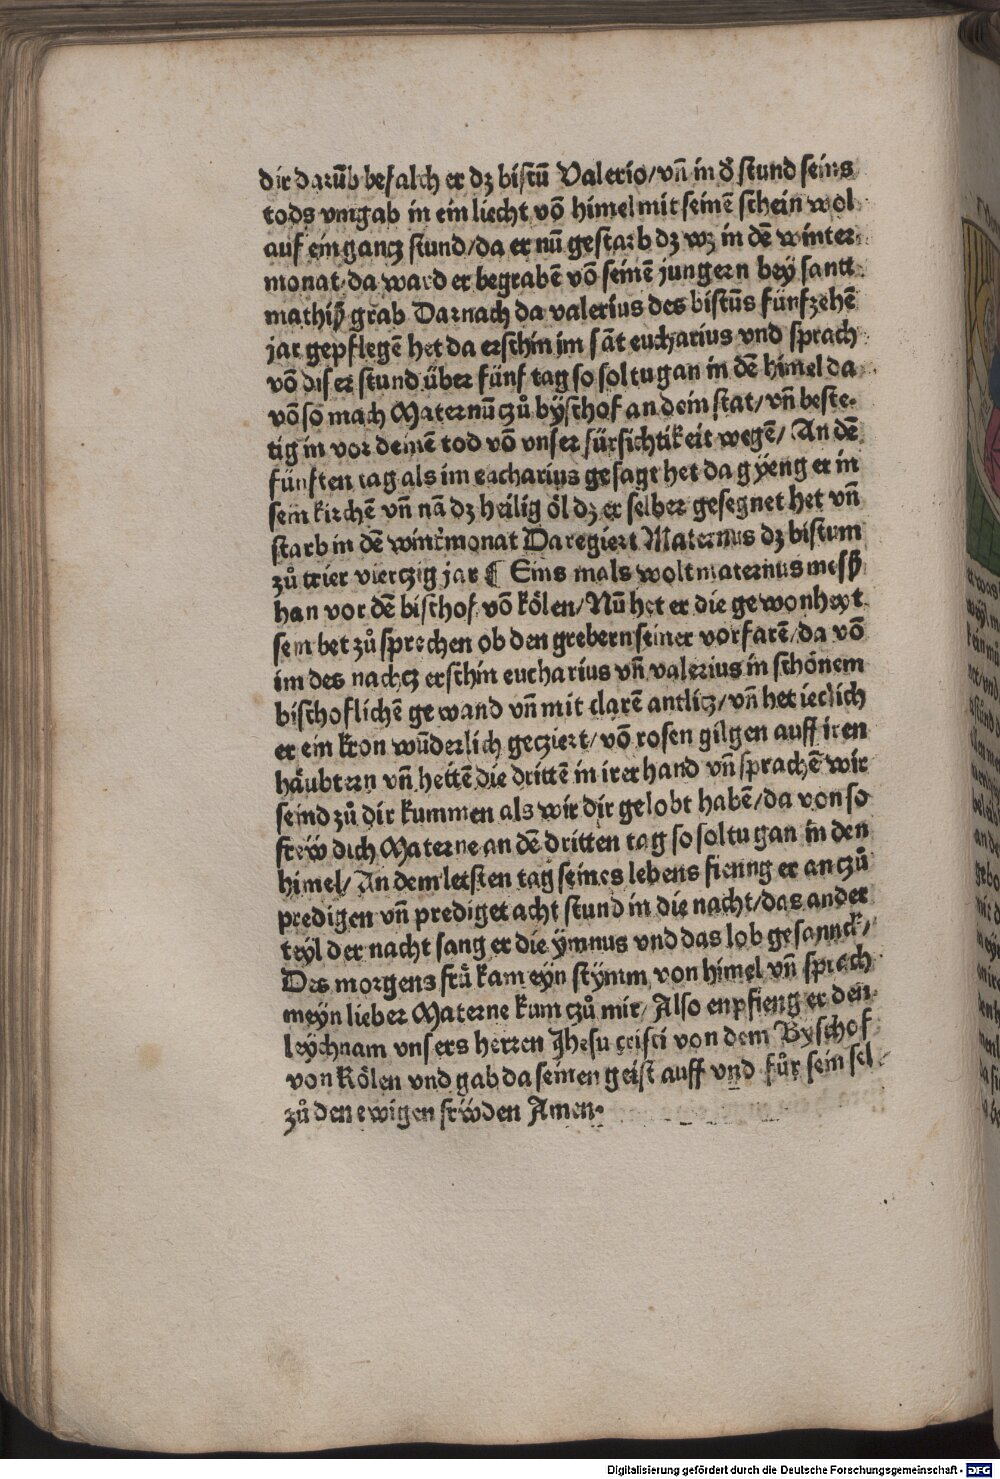 dir darūb befalch er dz bistū Valerio/ vñ in d̄ stund seins
tods vmgab in ein liecht vō himel mit seinē schein wol
auf ein gancz stund/ da er nū gestarb dz wz in dē winter-
monat· da ward er begrabē vō seinē jungern bey santt
mathiß grab Darnach da valerius des bistūs fünfzehē
jar gepflegē het da erschin im sāt eucharius vnd sprach
vō diser stund über fünf tag so soltu gan in dē himel da
vō so mach Maternū czů byschof an dein stat/ vñ beste-
tig in vor deinē tod vō vnser fürsichtikeit wegē/ An dē
fünften tag als im eucharius gesagt het da gyeng er in
sein kirchē vñ nā dz heilig öl dz er selber gesegnet het vñ
starb in dē winťmonat Da regiert Maternus dz bistum
zů trier vierczig jar ¶ Eins mals wolt maternus meß
han vor dē bischof vō kölen/ Nū het er die gewonheyt
sein bet zů sprechen ob den grebern seiner vorfarē/ da vō
im des nachcz erschin eucharius vñ valerius in schönem
bischoflichē gewand vñ mit clarē antlicz/ vñ het ieclich
er ein kron wūderlich gecziert/ vō rosen gilgen auff iren
häubtern vñ hettē die drittē in irer hand vñ sprachē wir
seind zů dir kummen als wir dir gelobt habē/ da von so
frew dich Materne an dē dritten tag so soltu gan in den
himel/ An dem letsten tag seines lebens fienng er an czů
predigen vñ prediget acht stund in die nacht/ das ander
teyl der nacht sang er die ymnus vnd das lob gesannck/
Des morgens frů kam eyn stymm von himel vñ sprach
meyn lieber Materne kum czů mir/ Also enpfieng er den
leychnam vnsers herren Jhesu cristi von dem Byschof
von Kölen vnd gab da seinen geist auff vnd fůr sein sel
zů den ewigen frwden Amen·
Digitalisierung gefördert durch die Deutsche Forschungsgemeinschaft - DFG